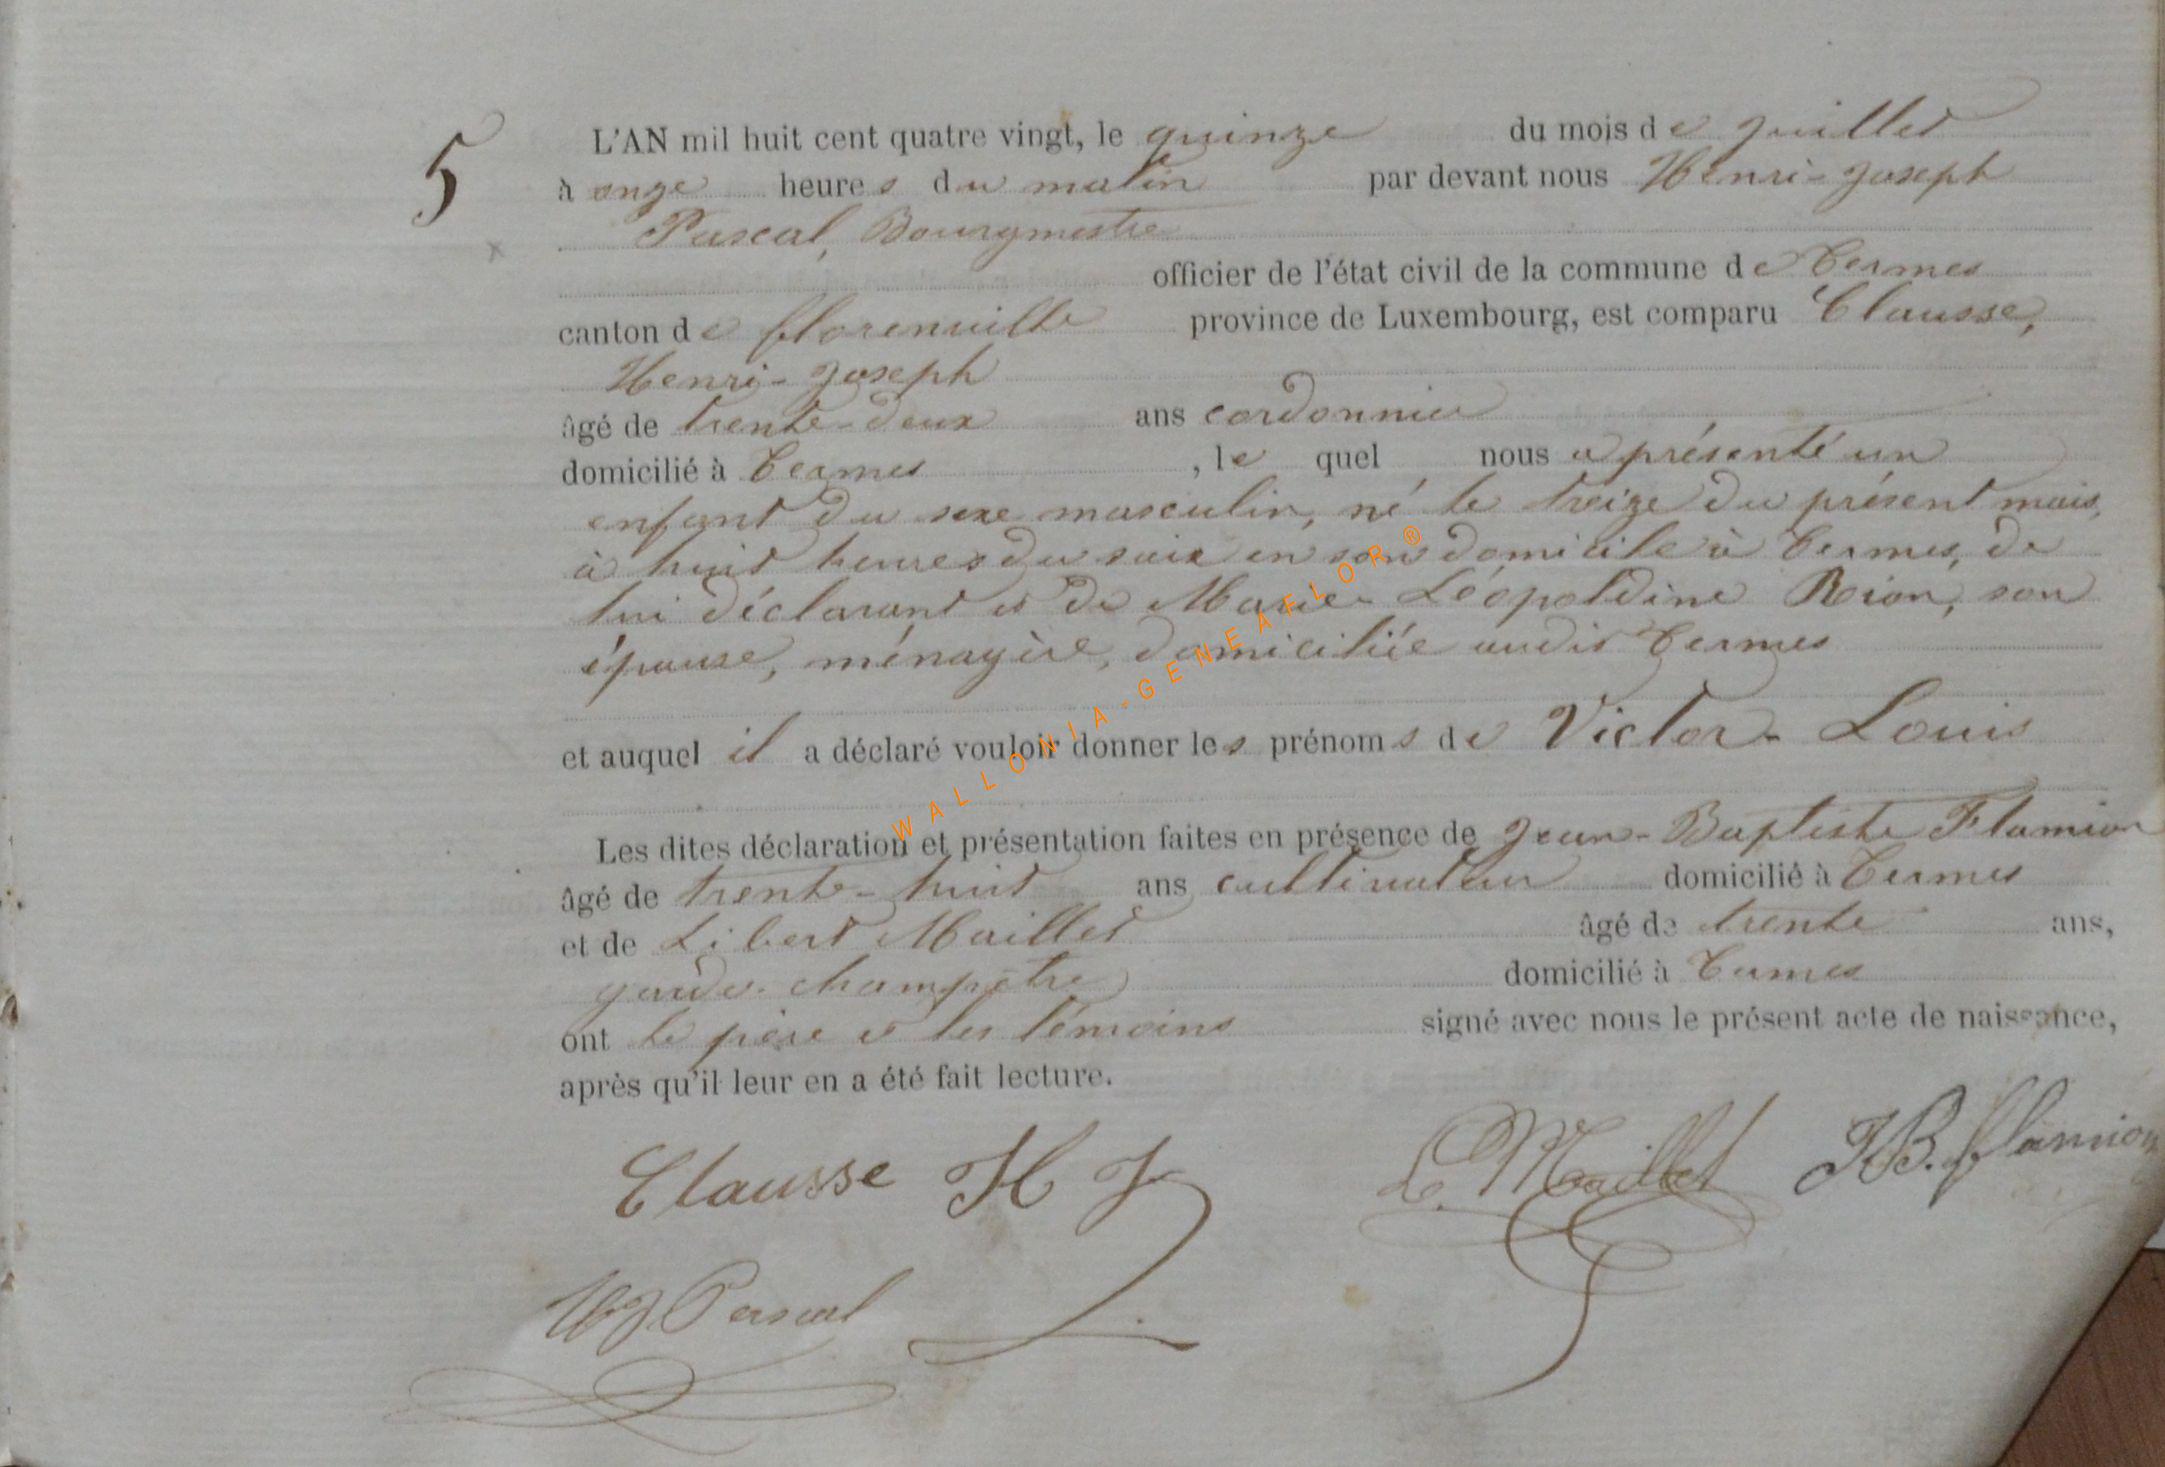 5
L'AN mil huit cent quatre vingt, le quinze du mois de juillet
à onze heures du matin par devant nous Henri-Joseph
Pascal, Bourgmestre
officier de l'état civil de la commune de Termes
canton de florenville province de Luxembourg, est comparu Clausse,
Henri-Joseph
âgé de trente-deux ans cordonnier
domicilié à Termes, le quel nous a présenté un
enfant du sexe masculin, né le treize du présent mois,
à huit heures du soir en son domicile à Termes, de
lui déclarant et de Marie-Léopoldine Rion, son
épouse, ménagère, domiciliée audit Termes
et auquel il a déclaré vouloir donner les prénoms de Victor-Louis
Les dites déclaration et présentation faites en présence de Jean-Baptiste Flamion
âgé de trente-huit ans cultivateur domicilié à Termes
et de Libert Maillet âgé de trente ans,
garde-champêtre domicilié à Termes
ont le père et les témoins signé avec nous le présent acte de naissance,
après qu'il leur en a été fait lecture.
Clausse H J L. Maillet JB. flamion
HJ Pascal
WALLONIA-GENEAFLOR®